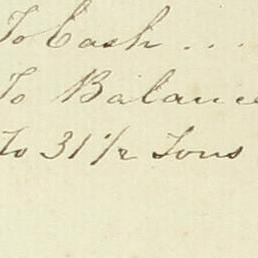 To Cash ...
To Balance
To 31 1/2 Tons